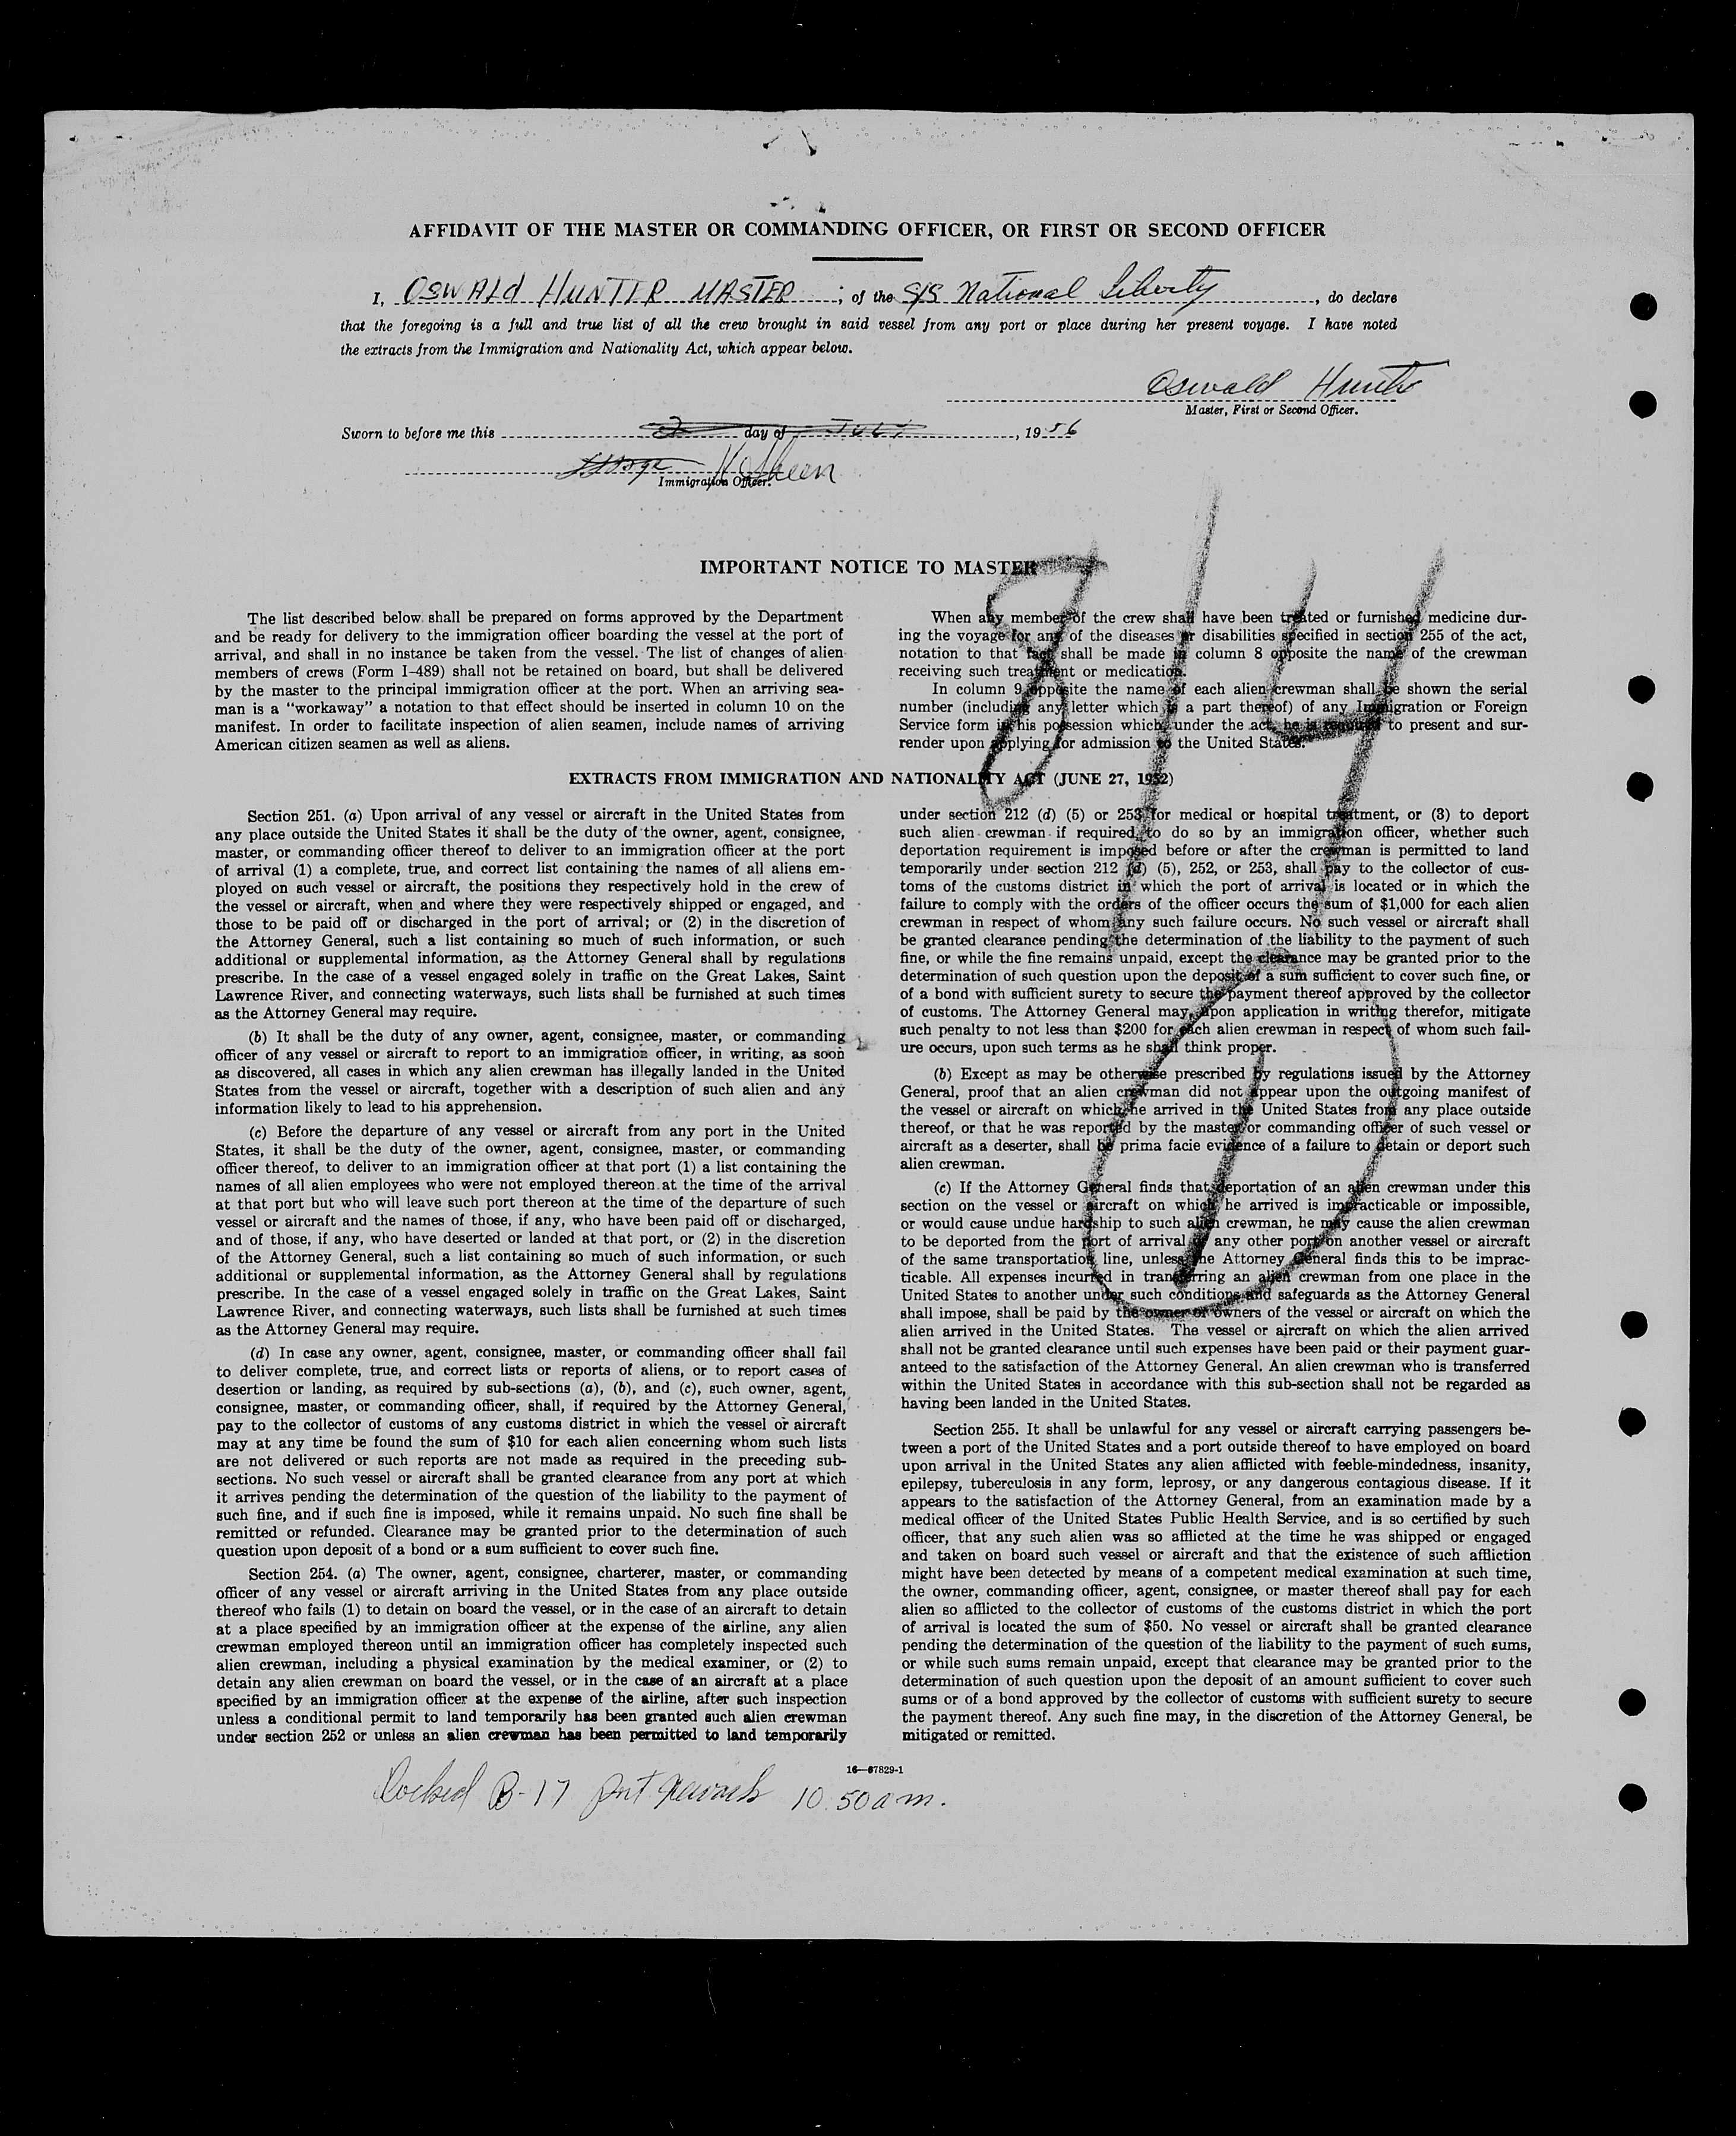 AFFIDAVIT OF THE MASTER OR COMMANDING OFFICER, OR FIRST OR SECOND OFFICER
I, OSWALD HUNTER MASTER ; of the S/S National Liberty , do declare
that the foregoing is a full and true list of all the crew brought in said vessel from any port or place during her present voyage. I have noted
the extracts from the Immigration and Nationality Act, which appear below.
Oswald Hunter
Master, First or Second Officer.
Sworn to before me this 2 day of July , 1956
Immigration Officer.
814
1
IMPORTANT NOTICE TO MASTER
The list described below shall be prepared on forms approved by the Department
and be ready for delivery to the immigration officer boarding the vessel at the port of
arrival, and shall in no instance be taken from the vessel. The list of changes of alien
members of crews (Form I-489) shall not be retained on board, but shall be delivered
by the master to the principal immigration officer at the port. When an arriving sea-
man is a "workaway" a notation to that effect should be inserted in column 10 on the
manifest. In order to facilitate inspection of alien seamen, include names of arriving
American citizen seamen as well as aliens.
When any member of the crew shall have been treated or furnished medicine dur-
ing the voyage for any of the diseases or disabilities specified in section 255 of the act,
notation to that fact shall be made in column 8 opposite the name of the crewman
receiving such treatment or medication.
In column 9 opposite the name of each alien crewman shall be shown the serial
number (including any letter which is a part thereof) of any Immigration or Foreign
Service form in his possession which, under the act, he is required to present and sur-
render upon applying for admission to the United States.
EXTRACTS FROM IMMIGRATION AND NATIONALITY ACT (JUNE 27, 1952)
Section 251. (a) Upon arrival of any vessel or aircraft in the United States from
any place outside the United States it shall be the duty of the owner, agent, consignee,
master, or commanding officer thereof to deliver to an immigration officer at the port
of arrival (1) a complete, true, and correct list containing the names of all aliens em-
ployed on such vessel or aircraft, the positions they respectively hold in the crew of
the vessel or aircraft, when and where they were respectively shipped or engaged, and
those to be paid off or discharged in the port of arrival; or (2) in the discretion of
the Attorney General, such a list containing so much of such information, or such
additional or supplemental information, as the Attorney General shall by regulations
prescribe. In the case of a vessel engaged solely in traffic on the Great Lakes, Saint
Lawrence River, and connecting waterways, such lists shall be furnished at such times
as the Attorney General may require.
(b) It shall be the duty of any owner, agent, consignee, master, or commanding
officer of any vessel or aircraft to report to an immigration officer, in writing, as soon
as discovered, all cases in which any alien crewman has illegally landed in the United
States from the vessel or aircraft, together with a description of such alien and any
information likely to lead to his apprehension.
(c) Before the departure of any vessel or aircraft from any port in the United
States, it shall be the duty of the owner, agent, consignee, master, or commanding
officer thereof, to deliver to an immigration officer at that port (1) a list containing the
names of all alien employees who were not employed thereon at the time of the arrival
at that port but who will leave such port thereon at the time of the departure of such
vessel or aircraft and the names of those, if any, who have been paid off or discharged,
and of those, if any, who have deserted or landed at that port, or (2) in the discretion
of the Attorney General, such a list containing so much of such information, or such
additional or supplemental information, as the Attorney General shall by regulations
prescribe. In the case of a vessel engaged solely in traffic on the Great Lakes, Saint
Lawrence River, and connecting waterways, such lists shall be furnished at such times
as the Attorney General may require.
(d) In case any owner, agent, consignee, master, or commanding officer shall fail
to deliver complete, true, and correct lists or reports of aliens, or to report cases of
desertion or landing, as required by sub-sections (a), (b), and (c), such owner, agent,
consignee, master, or commanding officer, shall, if required by the Attorney General,
pay to the collector of customs of any customs district in which the vessel or aircraft
may at any time be found the sum of $10 for each alien concerning whom such lists
are not delivered or such reports are not made as required in the preceding sub-
sections. No such vessel or aircraft shall be granted clearance from any port at which
it arrives pending the determination of the question of the liability to the payment of
such fine, and if such fine is imposed, while it remains unpaid. No such fine shall be
remitted or refunded. Clearance may be granted prior to the determination of such
question upon deposit of a bond or a sum sufficient to cover such fine.
Section 254. (a) The owner, agent, consignee, charterer, master, or commanding
officer of any vessel or aircraft arriving in the United States from any place outside
thereof who fails (1) to detain on board the vessel, or in the case of an aircraft to detain
at a place specified by an immigration officer at the expense of the airline, any alien
crewman employed thereon until an immigration officer has completely inspected such
alien crewman, including a physical examination by the medical examiner, or (2) to
detain any alien crewman on board the vessel, or in the case of an aircraft at a place
specified by an immigration officer at the expense of the airline, after such inspection
unless a conditional permit to land temporarily has been granted such alien crewman
under section 252 or unless an alien crewman has been permitted to land temporarily
under section 212 (d) (5) or 253 for medical or hospital treatment, or (3) to deport
such alien crewman if required to do so by an immigration officer, whether such
deportation requirement is imposed before or after the crewman is permitted to land
temporarily under section 212 (d) (5), 252, or 253, shall pay to the collector of cus-
toms of the customs district in which the port of arrival is located or in which the
failure to comply with the orders of the officer occurs the sum of $1,000 for each alien
crewman in respect of whom any such failure occurs. No such vessel or aircraft shall
be granted clearance pending the determination of the liability to the payment of such
fine, or while the fine remains unpaid, except the clearance may be granted prior to the
determination of such question upon the deposit of a sum sufficient to cover such fine, or
of a bond with sufficient surety to secure the payment thereof approved by the collector
of customs. The Attorney General may, upon application in writing therefor, mitigate
such penalty to not less than $200 for each alien crewman in respect of whom such fail-
ure occurs, upon such terms as he shall think proper.
(b) Except as may be otherwise prescribed by regulations issued by the Attorney
General, proof that an alien crewman did not appear upon the outgoing manifest of
the vessel or aircraft on which he arrived in the United States from any place outside
thereof, or that he was reported by the master or commanding officer of such vessel or
aircraft as a deserter, shall be prima facie evidence of a failure to detain or deport such
alien crewman.
(c) If the Attorney General finds that deportation of an alien crewman under this
section on the vessel or aircraft on which he arrived is impracticable or impossible,
or would cause undue hardship to such alien crewman, he may cause the alien crewman
to be deported from the port of arrival or any other port on another vessel or aircraft
of the same transportation line, unless the Attorney General finds this to be imprac-
ticable. All expenses incurred in transferring an alien crewman from one place in the
United States to another under such conditions and safeguards as the Attorney General
shall impose, shall be paid by the owner or owners of the vessel or aircraft on which the
alien arrived in the United States. The vessel or aircraft on which the alien arrived
shall not be granted clearance until such expenses have been paid or their payment guar-
anteed to the satisfaction of the Attorney General. An alien crewman who is transferred
within the United States in accordance with this sub-section shall not be regarded as
having been landed in the United States.
Section 255. It shall be unlawful for any vessel or aircraft carrying passengers be-
tween a port of the United States and a port outside thereof to have employed on board
upon arrival in the United States any alien afflicted with feeble-mindedness, insanity,
epilepsy, tuberculosis in any form, leprosy, or any dangerous contagious disease. If it
appears to the satisfaction of the Attorney General, from an examination made by a
medical officer of the United States Public Health Service, and is so certified by such
officer, that any such alien was so afflicted at the time he was shipped or engaged
and taken on board such vessel or aircraft and that the existence of such affliction
might have been detected by means of a competent medical examination at such time,
the owner, commanding officer, agent, consignee, or master thereof shall pay for each
alien so afflicted to the collector of customs of the customs district in which the port
of arrival is located the sum of $50. No vessel or aircraft shall be granted clearance
pending the determination of the question of the liability to the payment of such sums,
or while such sums remain unpaid, except that clearance may be granted prior to the
determination of such question upon the deposit of an amount sufficient to cover such
sums or of a bond approved by the collector of customs with sufficient surety to secure
the payment thereof. Any such fine may, in the discretion of the Attorney General, be
mitigated or remitted.
16—67829-1
Docked B-17 Port Newark 10:50 am.